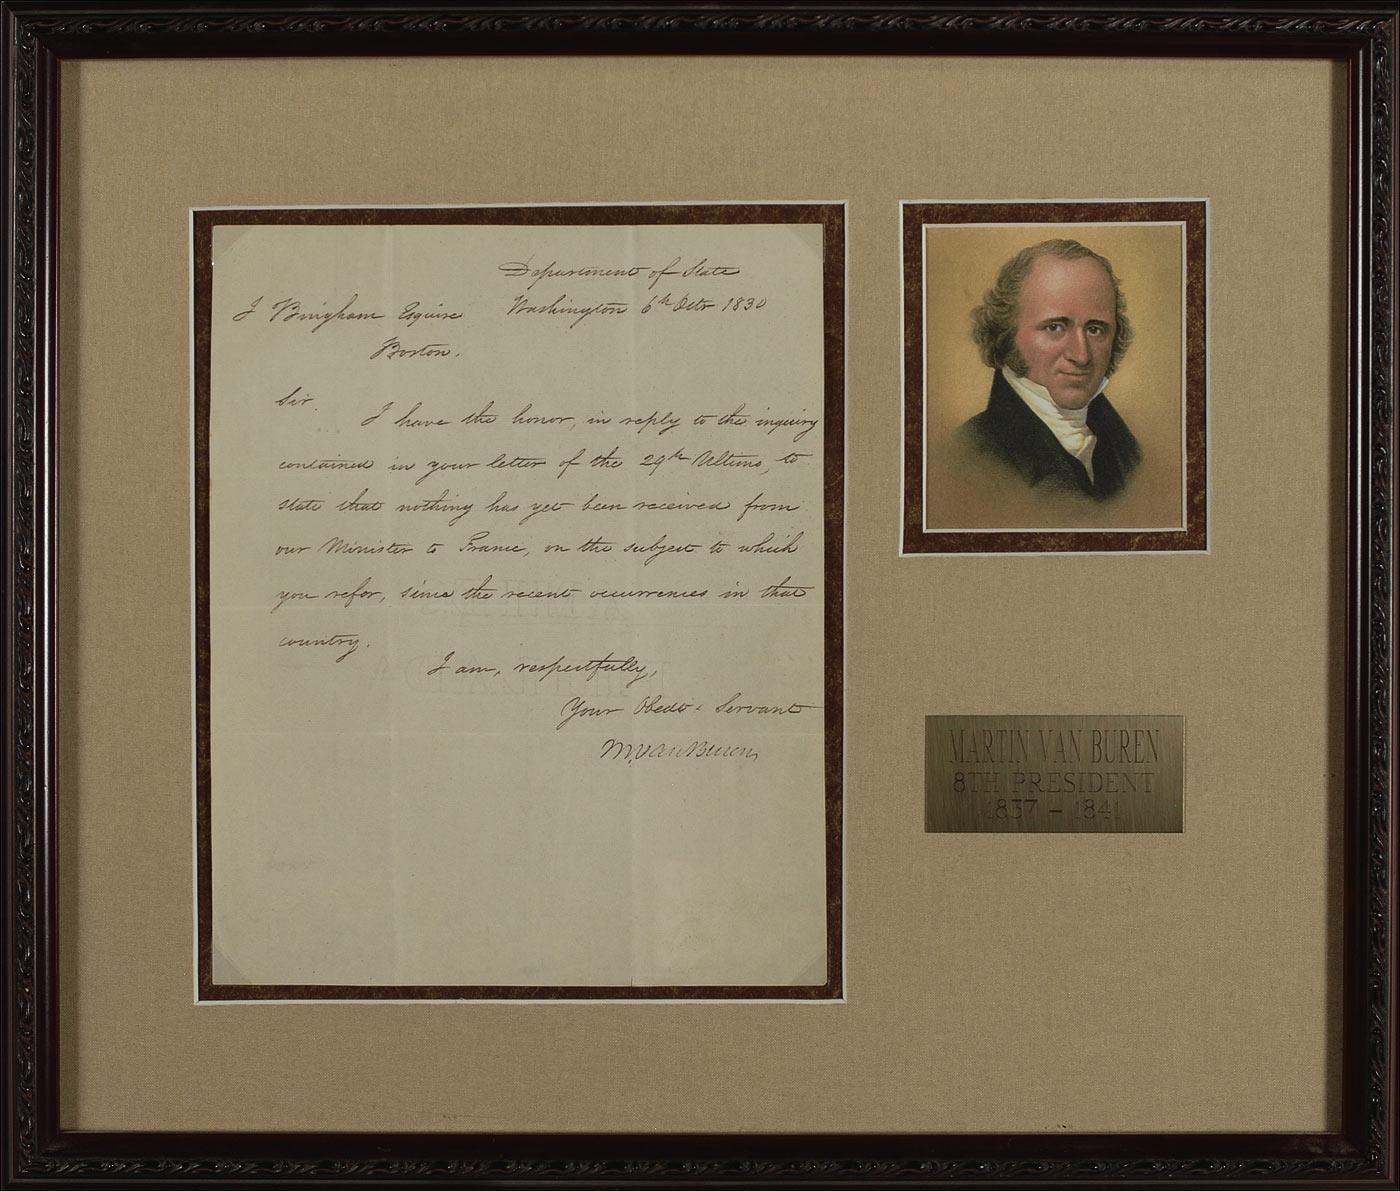 Department of State
J Bingham Esquire Washington 6th Octr 1830
Boston.
Sir.
I have the honor, in reply to the inquiry
contained in your letter of the 29th Ultimo, to
state that nothing has yet been received from
our Minister to France, on the subject to which
you refer, since the recent occurrences in that
country.
I am, respectfully,
Your Obedt. Servant
M. Van Buren
MARTIN VAN BUREN
8TH PRESIDENT
1837 - 1841